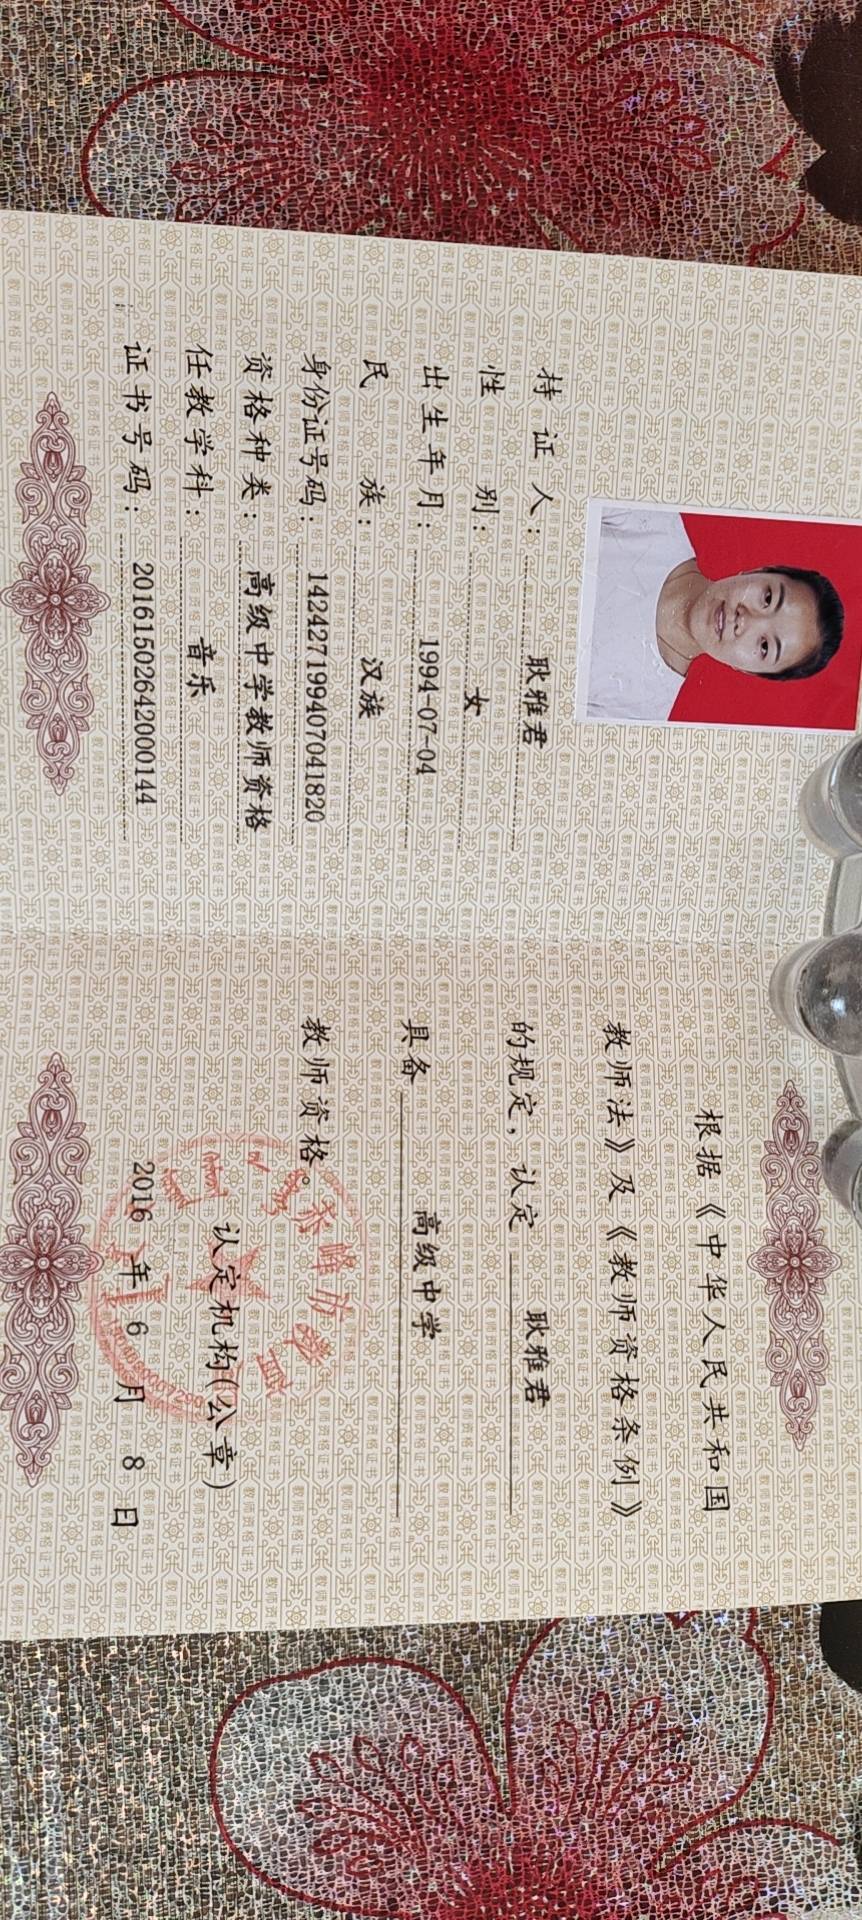 持证人：耿雅君
性别：女
出生年月：1994-07-04
民族：汉族
身份证号码：142427199407041820
资格种类：高级中学教师资格
任教学科：音乐
证书号码：20161502642000144
根据《中华人民共和国
教师法》及《教师资格条例》
的规定，认定 耿雅君
具备 高级中学
教师资格。
认定机构(公章)
2016 年 6 月 8 日
赤峰市教育